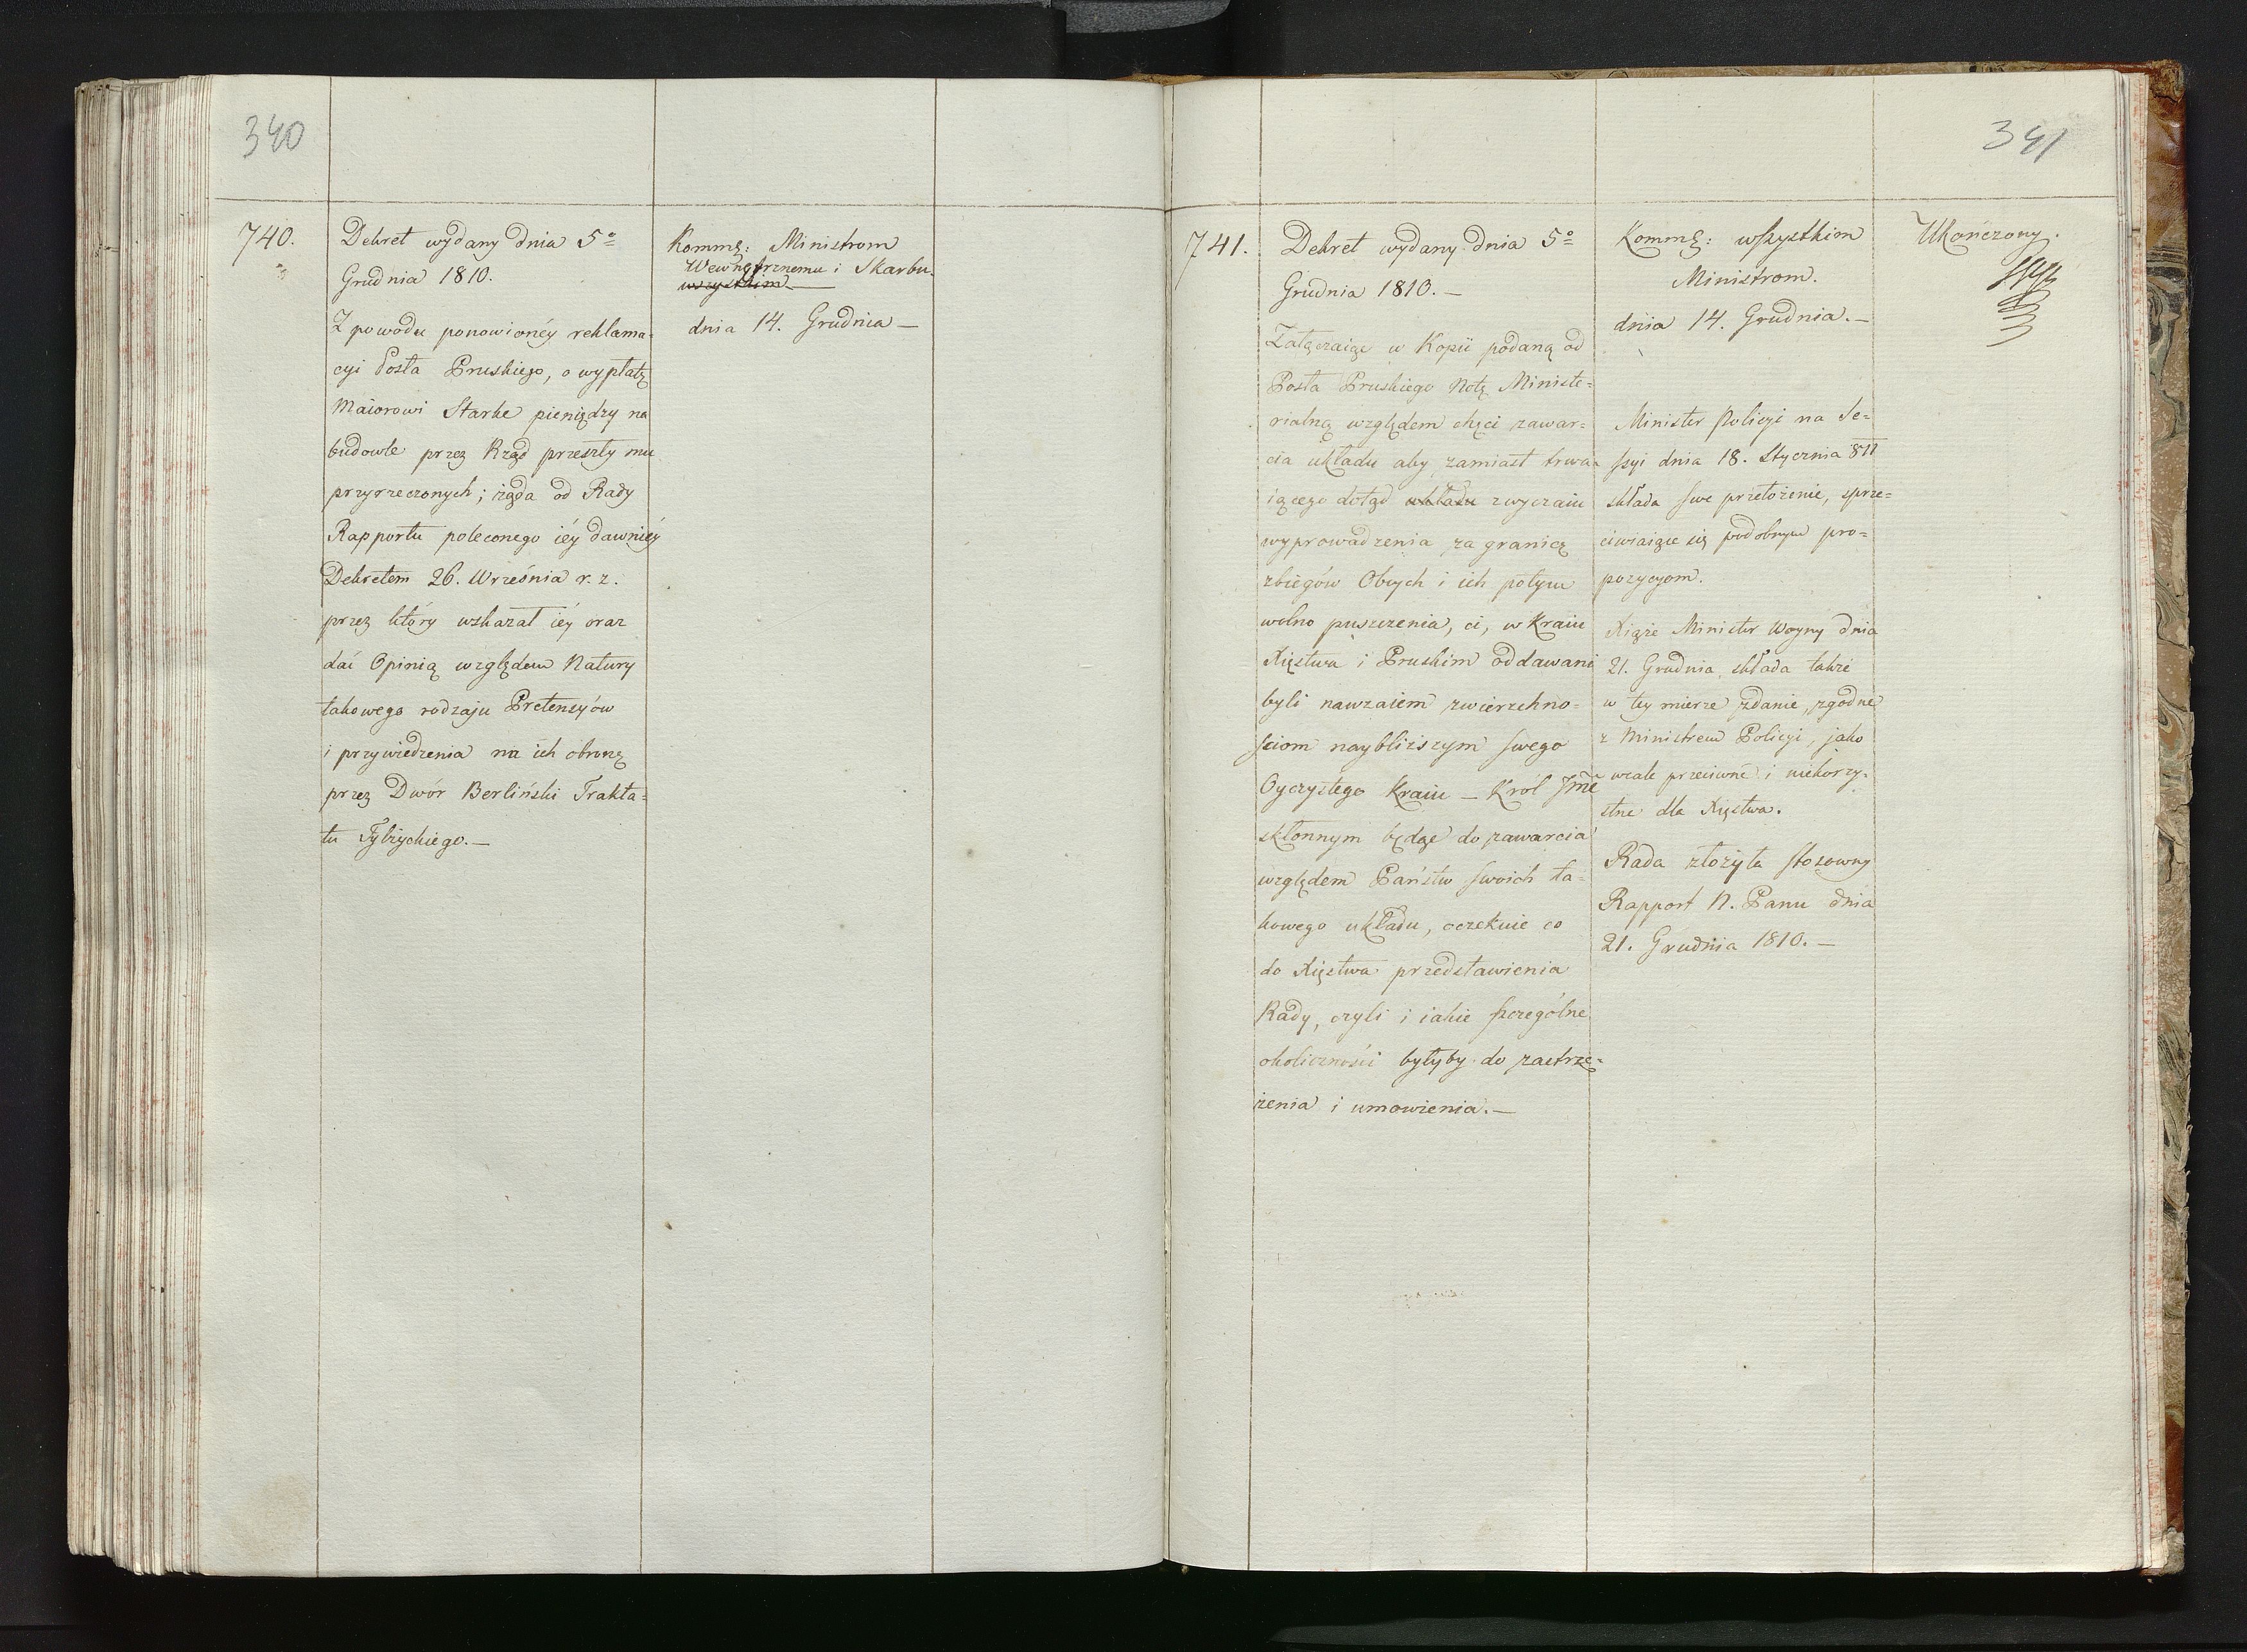 340
740.
Dekret wydany dnia 5º
Grudnia 1810.
Z powodu ponowionéy reklama=
cyi Posła Pruskiego, o wypłatę
Maiorowi Starke pieniędzy na
budowle przez Rząd przeszły mu
przyrzeczonych; żąda od Rady
Rapportu poleconego iéy dawniéy
Dekretem 26. Września r. z.
przez który wskazał iéy oraz
dać Opinią względem Natury
takowego rodzaju Pretensyów
i przywiedzenia na ich obronę
przez Dwór Berliński Trakta=
tu Tylżyckiego.—
Kommę: Ministrom
Wewnętrznemu i Skarbu.
wszystkim
dnia 14. Grudnia —
341
741.
Dekret wydany dnia 5º
Grudnia 1810.—
Załączaiąc w Kopii podaną od
Posła Pruskiego Notę Ministe=
rialną względem chęci zawar=
cia układu aby zamiast trwa=
iącego dotąd układu zwyczaiu
wyprowadzenia za granicę
zbiegów Obcych i ich potym
wolno puszczenia, ci, w Kraiu
Xięstwa i Pruskim oddawani
byli nawzaiem zwierzchno=
ściom naybliższym swego
Oyczystego Kraiu — Król Jmć
skłonnym będąc do zawarcia
względem Państw swoich ta=
kowego układu, oczekuie co
do Xięstwa przedstawienia
Rady, czyli i iakie szczególne
okoliczności byłyby do zastrze=
żenia i umowienia.—
Kommę: wszystkim
Ministrom.
dnia 14. Grudnia.—
Minister Policyi na Se=
ssyi dnia 18. Stycznia 811
składa swe przełożenie, sprze=
ciwiaiąc się podobnym pro=
pozycyom.
Xiąże Minister Woyny dnia
21. Grudnia składa także
w tey mierze zdanie, zgodne
z Ministrem Policyi, jako
wcale przeciwne i niekorzy=
stne dla Xięstwa.
Rada złożyła stosowny
Rapport N. Panu dnia
21. Grudnia 1810.—
Ukończony.